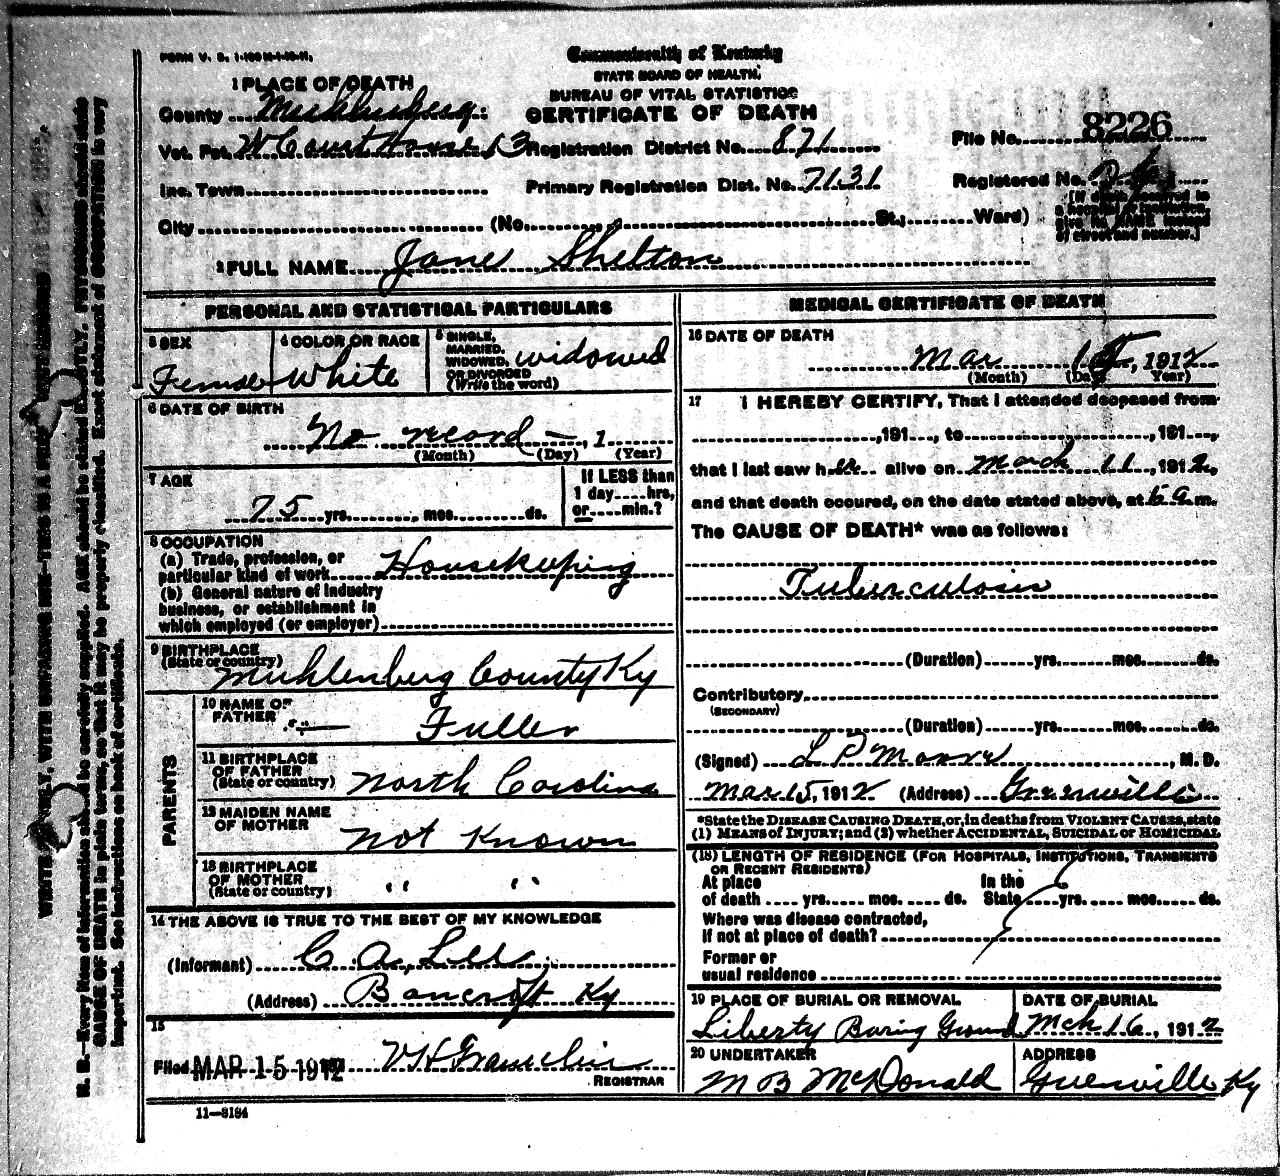 FORM V. S. 1-100M-1-10-11.
Commonwealth of Kentucky
STATE BOARD OF HEALTH,
BUREAU OF VITAL STATISTICS
CERTIFICATE OF DEATH
1 PLACE OF DEATH
County Muhlenberg
Vot. Pct. W Court House 13 Registration District No. 871
File No. 8226
Inc. Town
Primary Registration Dist. No. 7131
Registered No.
City (No. St.; Ward)
[If death occurred in a hospital or institution, give its NAME instead of street and number.]
2 FULL NAME Jane Shelton
PERSONAL AND STATISTICAL PARTICULARS
3 SEX
Female
4 COLOR OR RACE
White
5 SINGLE, MARRIED, WIDOWED, OR DIVORCED (Write the word)
widowed
6 DATE OF BIRTH
No record —, 1
(Month) (Day) (Year)
7 AGE
75 yrs. mos. ds.
If LESS than 1 day hrs, or min.?
8 OCCUPATION
(a) Trade, profession, or
particular kind of work Housekeeping
(b) General nature of industry
business, or establishment in
which employed (or employer)
9 BIRTHPLACE
(State or country)
Muhlenberg County Ky
PARENTS
10 NAME OF FATHER
Fuller
11 BIRTHPLACE OF FATHER (State or country)
North Carolina
12 MAIDEN NAME OF MOTHER
Not Known
13 BIRTHPLACE OF MOTHER (State or country)
" "
14 THE ABOVE IS TRUE TO THE BEST OF MY KNOWLEDGE
(Informant) C. A. Lee
(Address) Bancroft Ky
15
Filed MAR 15 1912
REGISTRAR
11—3184
MEDICAL CERTIFICATE OF DEATH
16 DATE OF DEATH
Mar 15, 1912
(Month) (Day) (Year)
17 I HEREBY CERTIFY, That I attended deceased from
, 191 , to , 191 ,
that I last saw her alive on March 11, 1912,
and that death occured, on the date stated above, at m.
The CAUSE OF DEATH* was as follows:
Tuberculosis
(Duration) yrs. mos. ds.
Contributory
(SECONDARY)
(Duration) yrs. mos. ds.
(Signed) L P Moore, M. D.
Mar 15, 1912 (Address) Greenville
*State the DISEASE CAUSING DEATH, or, in deaths from VIOLENT CAUSES, state
(1) MEANS of INJURY; and (2) whether ACCIDENTAL, SUICIDAL or HOMICIDAL
(18) LENGTH OF RESIDENCE (FOR HOSPITALS, INSTITUTIONS, TRANSIENTS
OR RECENT RESIDENTS)
At place of death yrs. mos. ds.
In the State yrs. mos. ds.
Where was disease contracted,
If not at place of death?
Former or
usual residence
19 PLACE OF BURIAL OR REMOVAL
Liberty Buring Ground
DATE OF BURIAL
Mch 16, 1912
20 UNDERTAKER
M B McDonald
ADDRESS
Greenville Ky
WRITE PLAINLY, WITH UNFADING INK—THIS IS A PERMANENT RECORD
N. B.—Every item of information should be carefully supplied. AGE should be stated EXACTLY. PHYSICIANS should state
CAUSE OF DEATH in plain terms, so that it may be properly classified. Exact statement of OCCUPATION is very
important. See instructions on back of certificate.